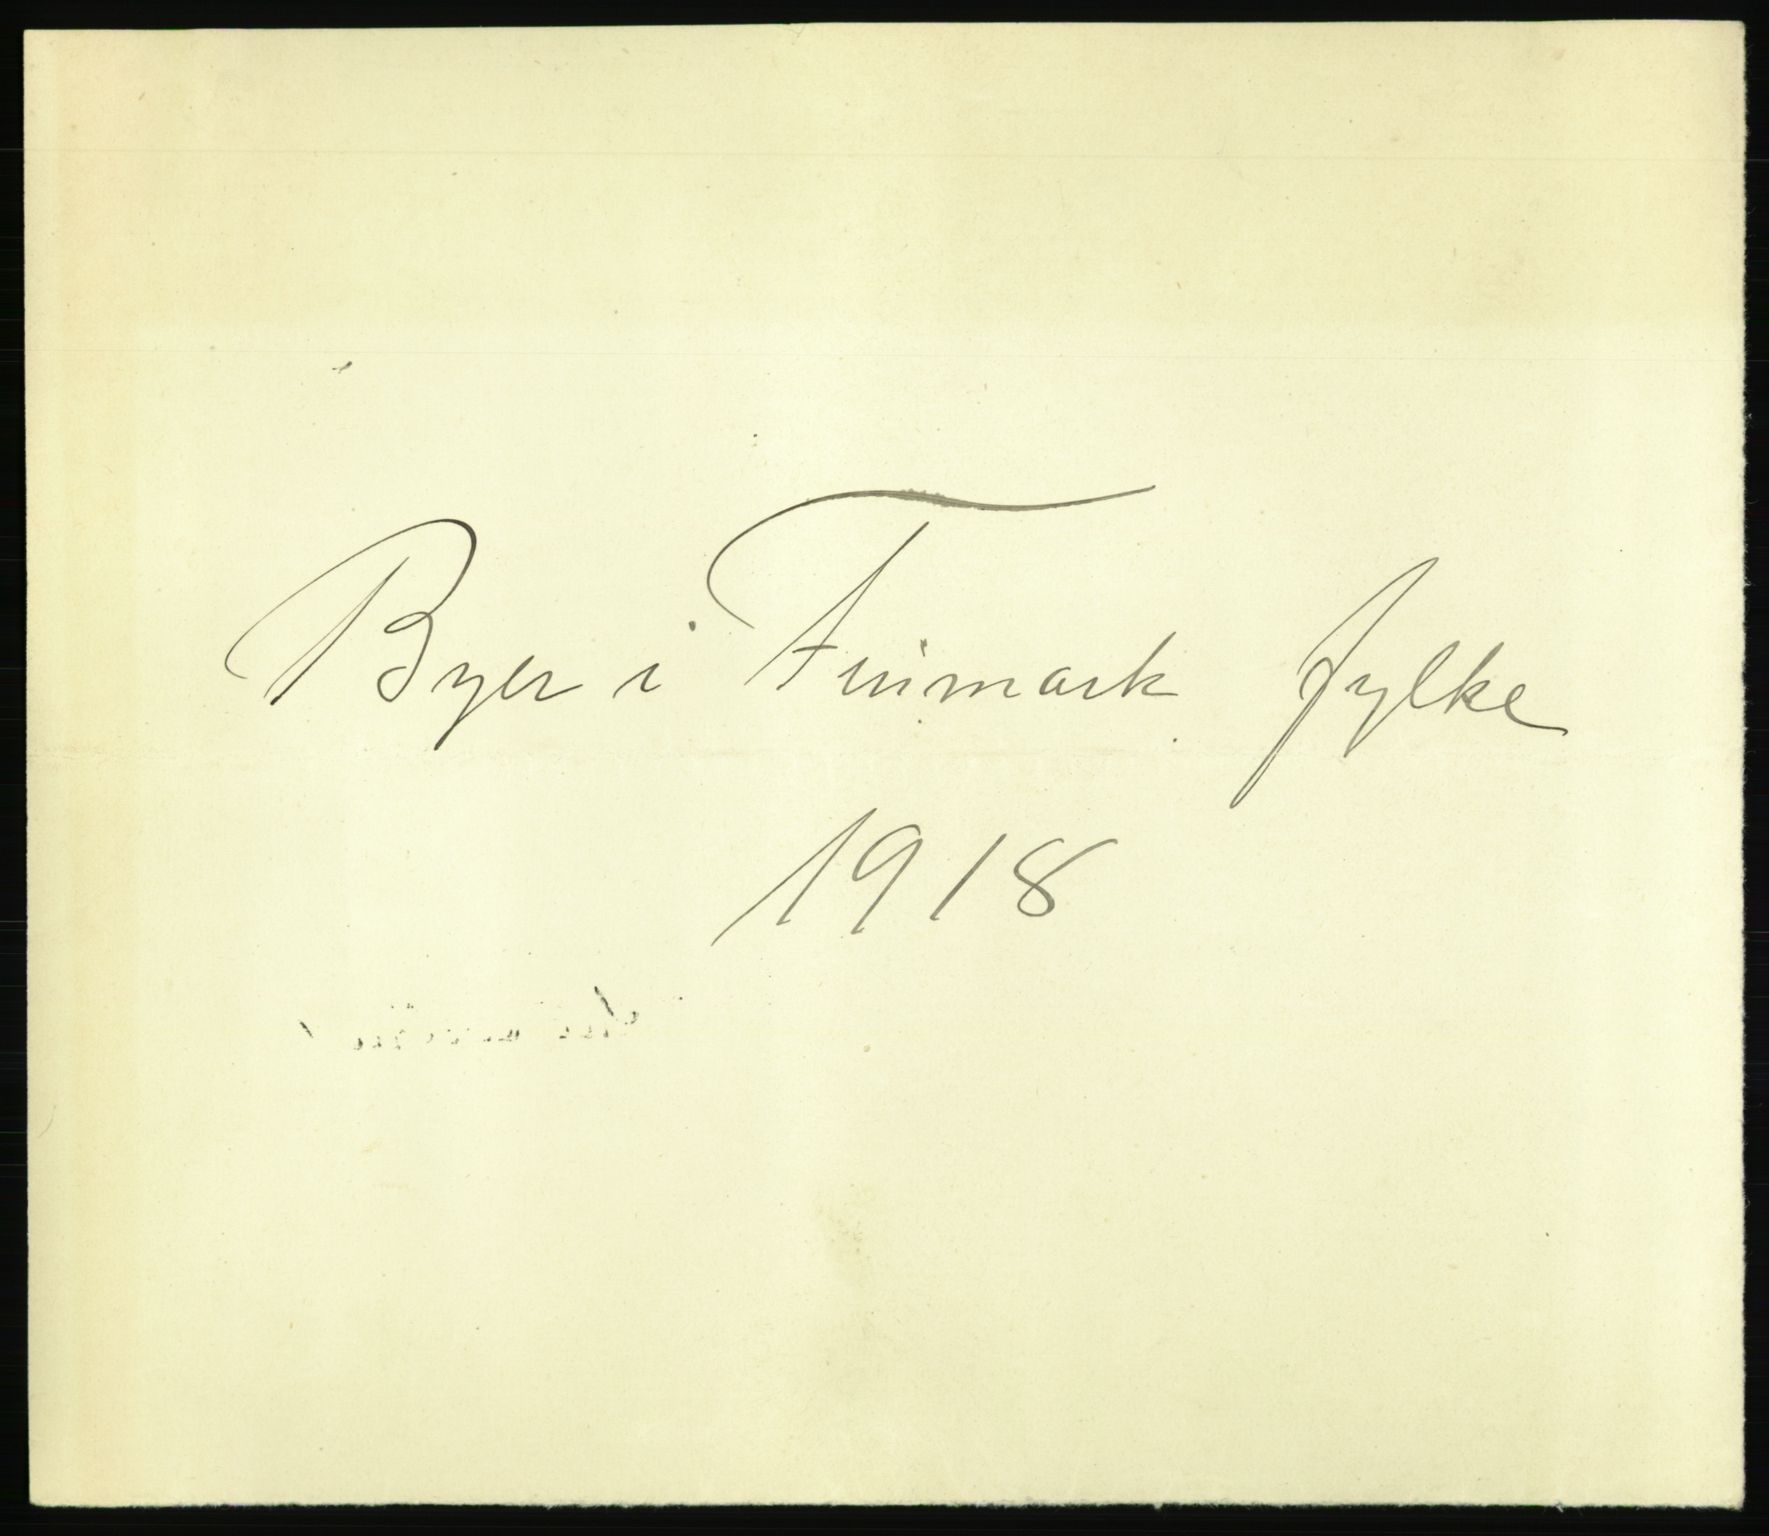 Byer i Finmark fylke
1918